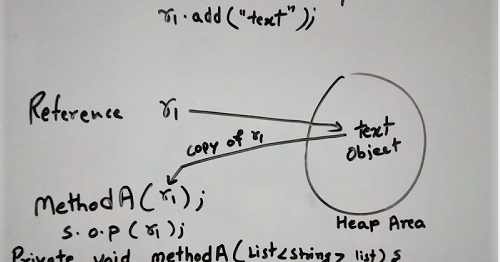 r1.add("text");
Reference r1
text
Object
copy of r1
MethodA(r1);
Heap Area
s.o.p(r1);
Private void methodA(List<String> list) {